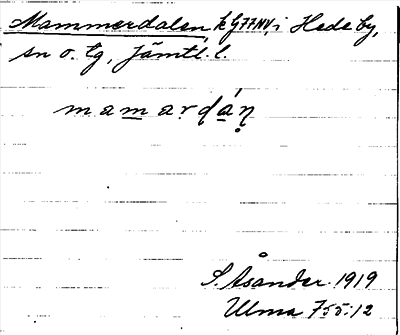 Mammerdalen, k G77NV, i Hede by,
sn o. tg, Jämtl. l.
mamardáṇ
S. Åsander. 1919
Ulma 755:12